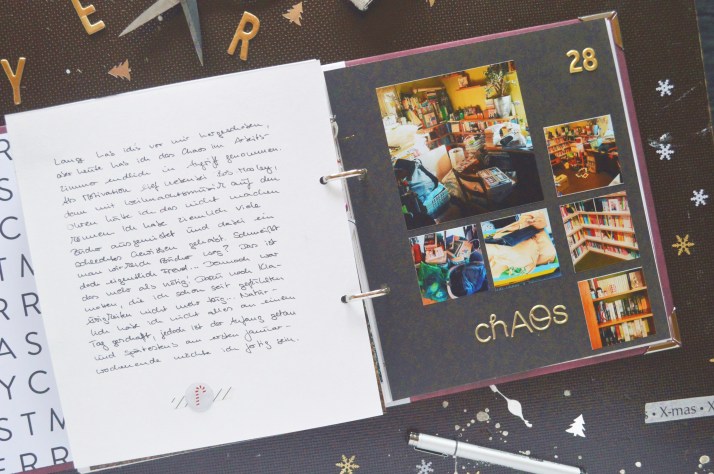 Y E R
Lang hab ich's vor mir hergeschoben,
aber heute hab ich das Chaos im Arbeits-
zimmer endlich in Angriff genommen.
Als Motivation lief nebenbei
denn mit Weihnachtsmusik auf den
Ohren hätte ich das nicht machen
können. Ich habe ziemlich viele
Bücher ausgemistet und dabei ein
schlechtes Gewissen gehabt. Schmeißt
man wirklich Bücher weg? Das ist
doch eigentlich Frevel - Dennoch war
das mehr als nötig. Dazu noch Kla-
motten, die ich schon seit gefühlten
Ewigkeiten nicht mehr trug... Natür-
lich habe ich nicht alles an einem
Tag geschafft, jedoch ist der Anfang getan
und spätestens am ersten Januar-
wochenende möchte ich fertig sein.
28
chAOs
R
AS
STM
ERR
AS
YC
STM
ERR
X-mas